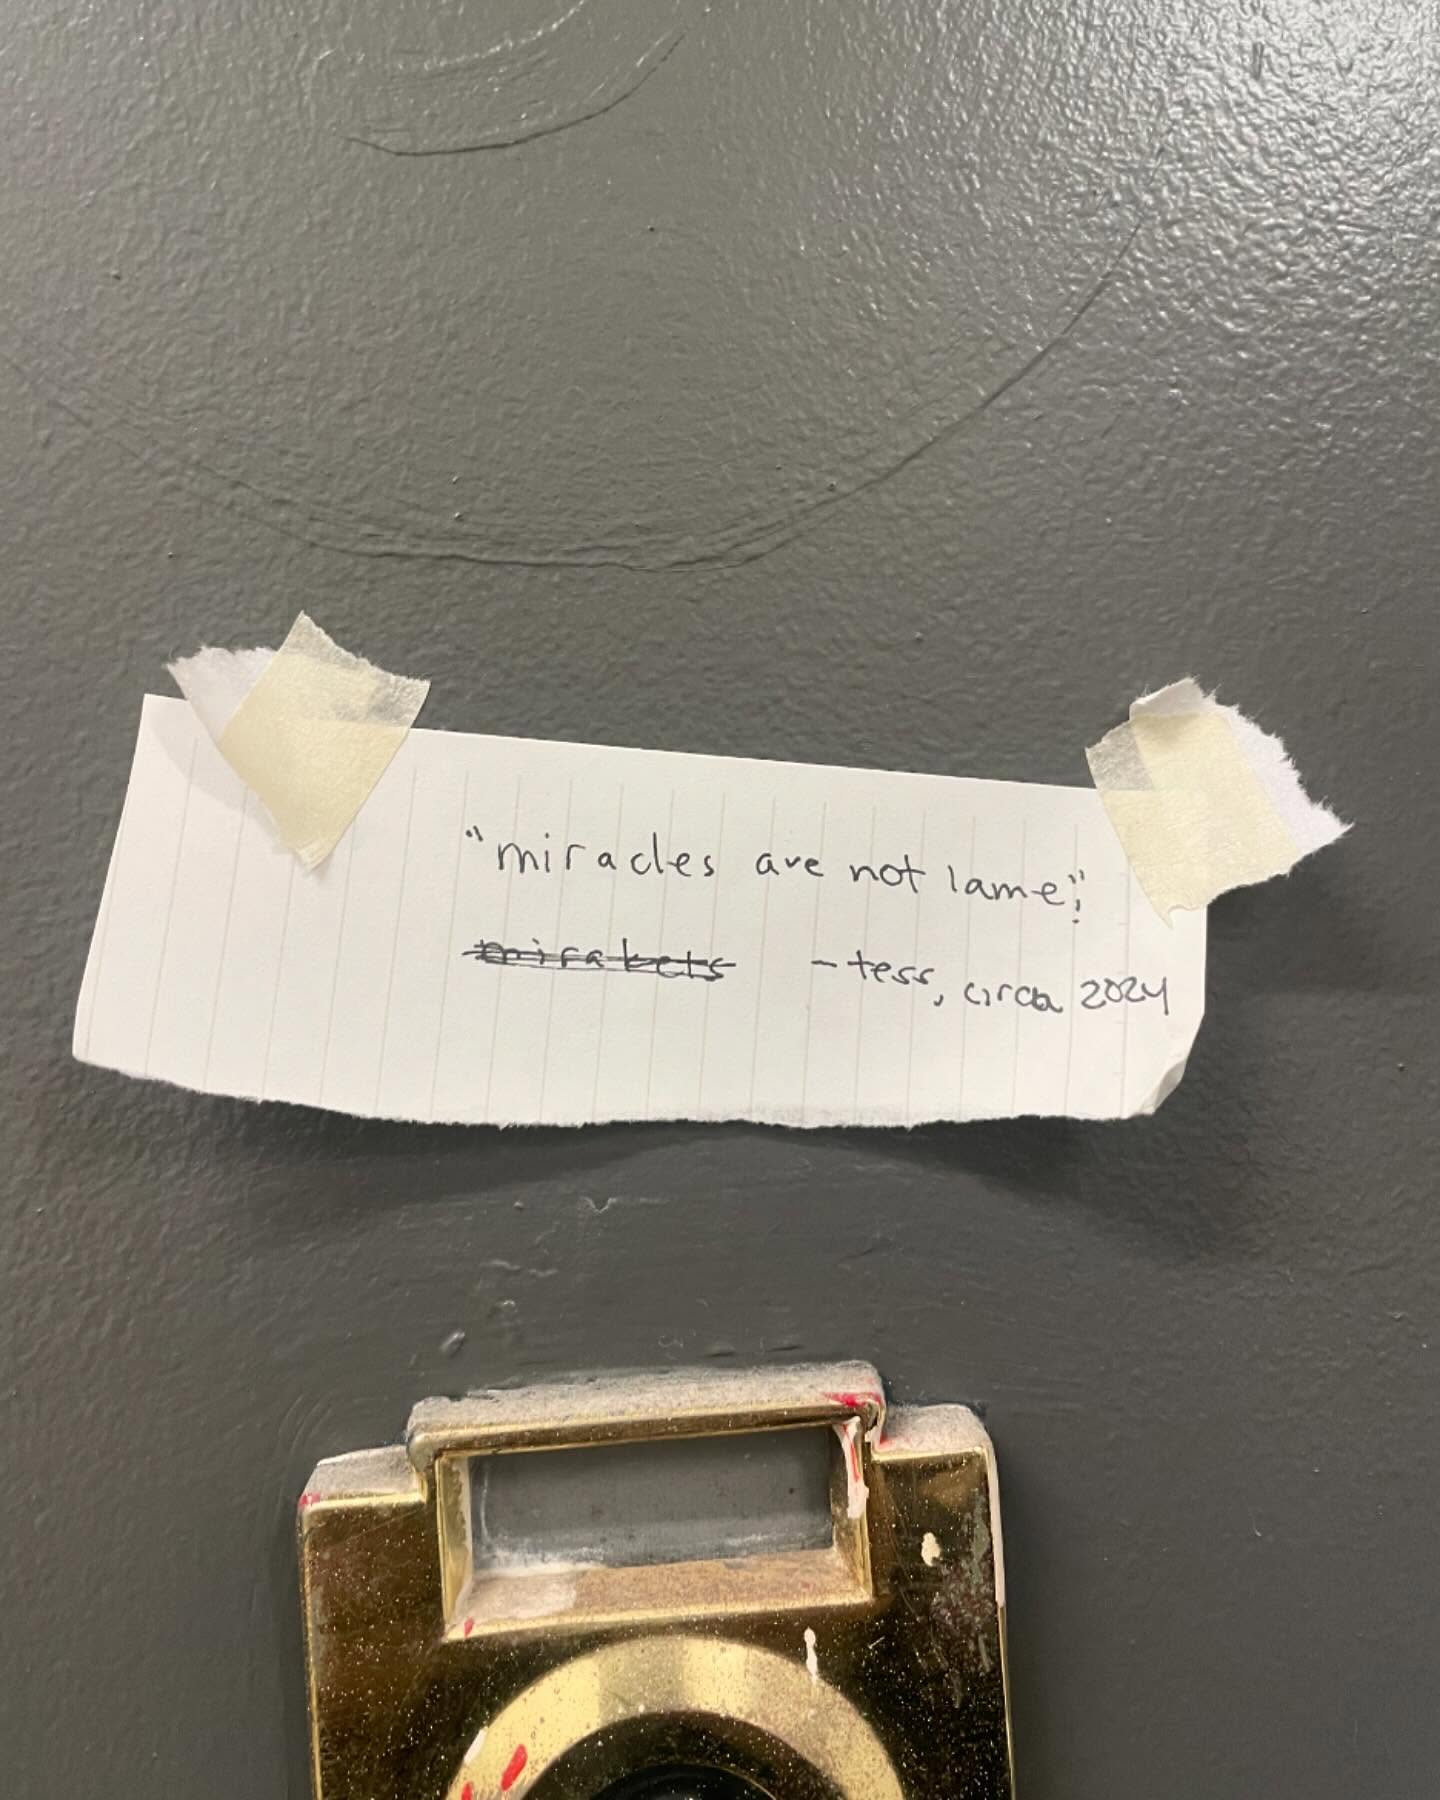 "miracles are not lame!"
mirabets -tess, circa 2024